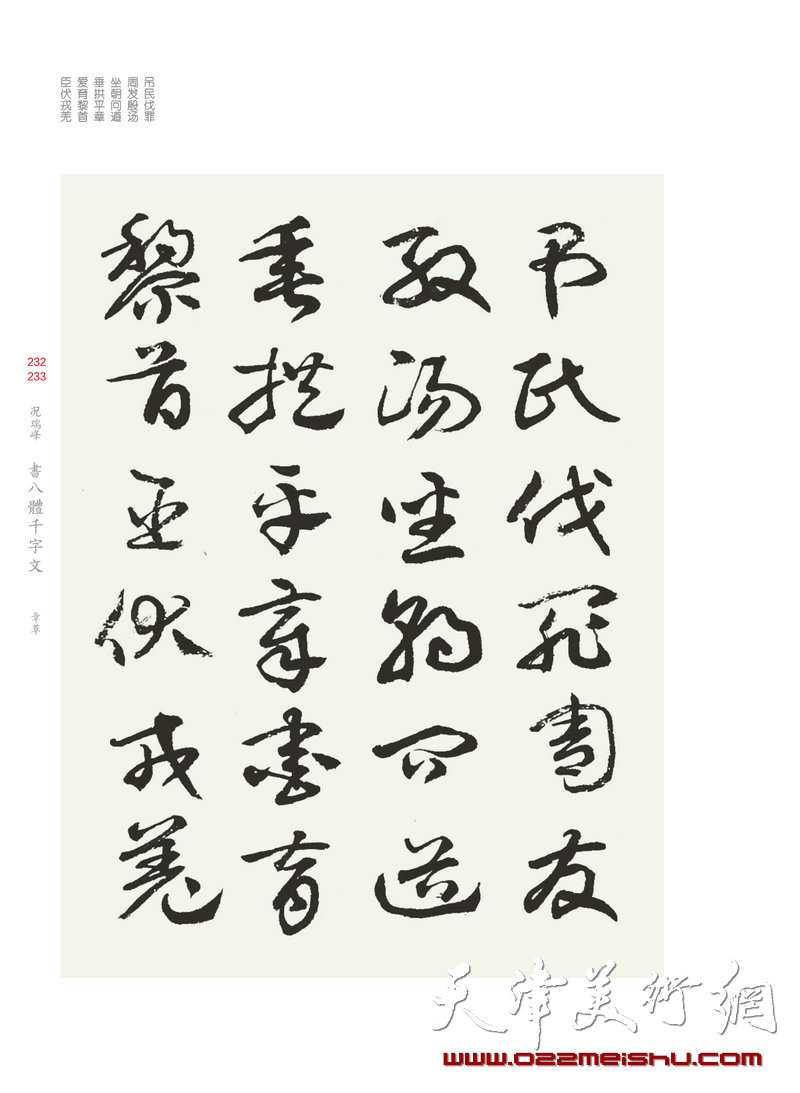 吊民伐罪
周发殷汤
坐朝问道
垂拱平章
爱育黎首
臣伏戎羌
吊民伐罪周发
殷汤坐朝问道
垂拱平章爱育
黎首臣伏戎羌
232
233
况瑞峰
書八體千字文
章草
天津美術網
www.022meishu.com